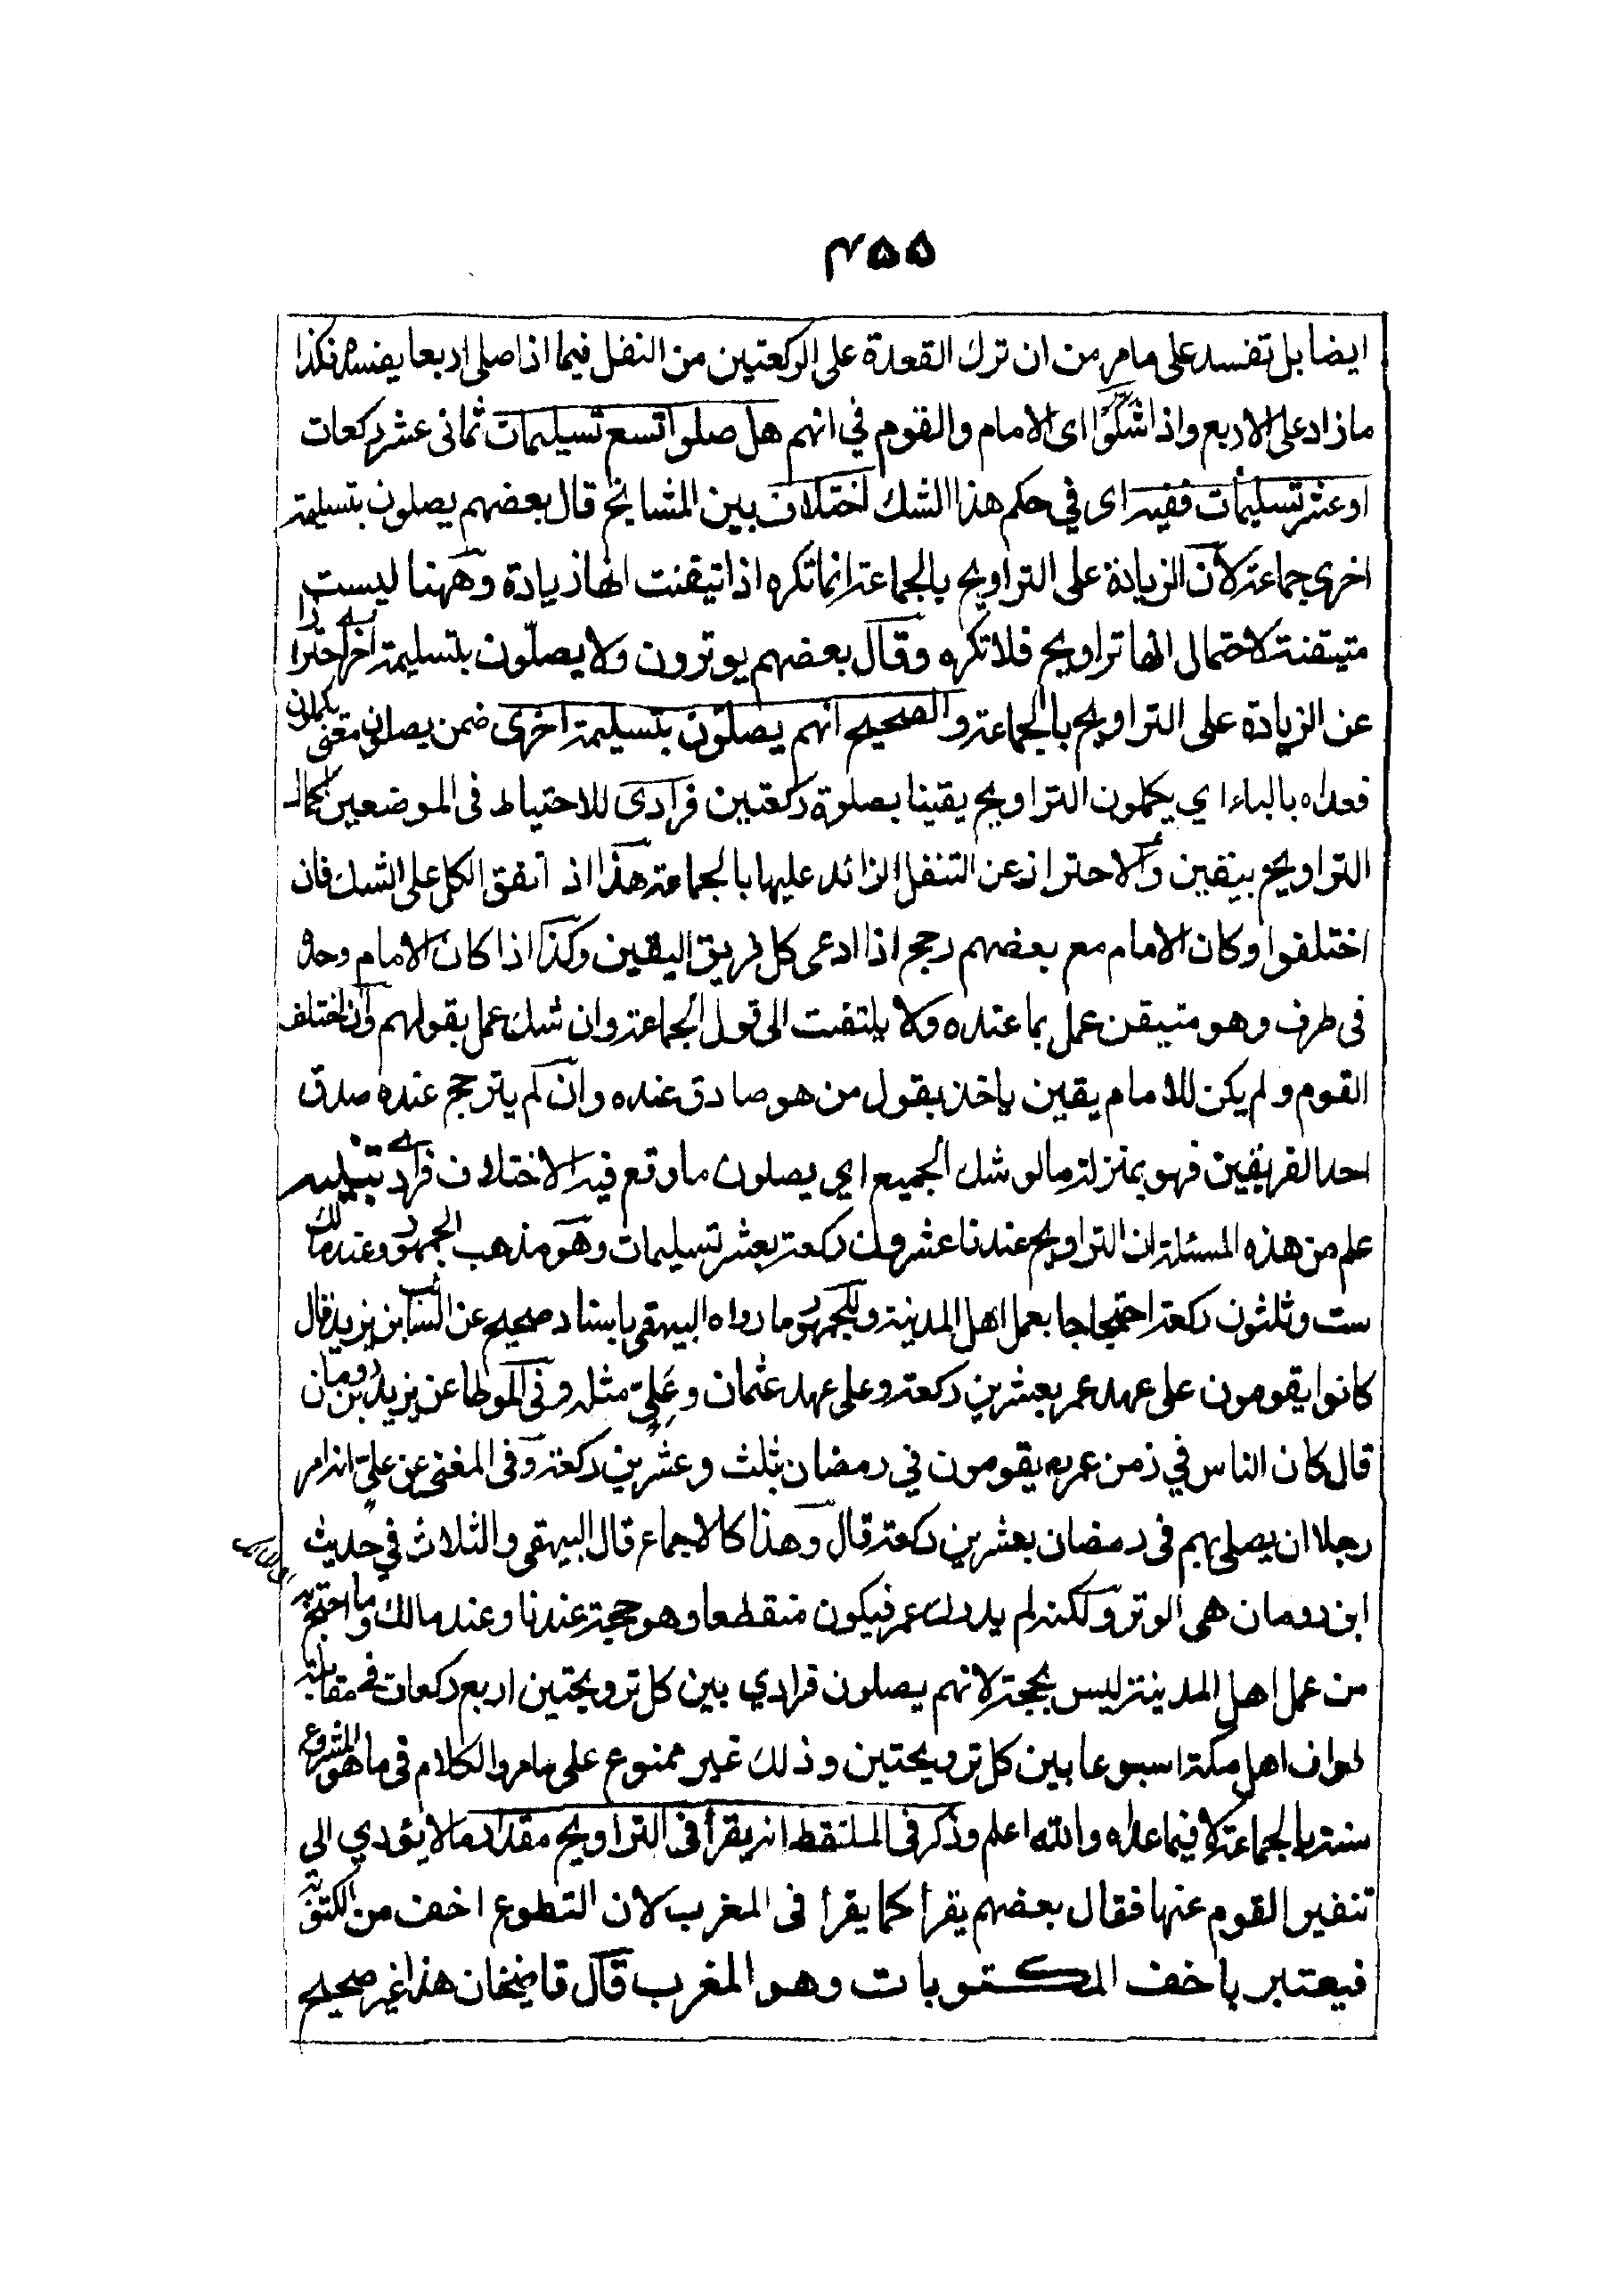 ۴۵۵
ايضا بل تفسد على ما مر من ان ترك القعدة على الركعتين من النفل فيما اذا صلى اربعا يفسده فكذا
ما زاد على الاربع واذا شكّوا اى الامام والقوم في انهم هل صلوا تسع تسليمات ثمانى عشر ركعات
او عشر تسليمات ففيه اى في حكم هذا الشك اختلاف بين المشايخ قال بعضهم يصلون بتسليمة
اخرى جماعة لان الزيادة على التراويح بالجماعة انما تكره اذا تيقنت انها زيادة وههنا ليست
متيقنة لاحتمال انها تراويح فلا تكره وقال بعضهم يوترون ولا يصلّون بتسليمة اخرى احترازا
عن الزيادة على التراويح بالجماعة والصحيح انهم يصلّون بتسليمة اخرى ضمن يصلون معنى يكملون
فعداه بالباء اي يكملون التراويح يقينا بصلوة ركعتين فرادى للاحتياط فى الموضعين اكمال
التراويح بيقين والاحتراز عن التنفل الزائد عليها بالجماعة هذا اذ اتفق الكل على الشك فان
اختلفوا وكان الامام مع بعضهم رجح اذا ادعى كل فريق اليقين وكذا اذا كان الامام وحده
فى طرف وهو متيقن عمل بما عنده ولا يلتفت الى قول الجماعة وان شك عمل بقولهم وان اختلف
القوم ولم يكن للامام يقين ياخذ بقول من هو صادق عنده وان لم يترجح عنده صدق
احد الفريقين فهو بمنزلة ما لو شك الجميع اي يصلون ما وقع فيه الاختلاف فرادى تنبيه
علم من هذه المسئلة ان التراويح عندنا عشرون ركعة بعشر تسليمات وهو مذهب الجمهور وعند مالك
ست وثلثون ركعة احتجاجا بعمل اهل المدينة وللجمهور ما رواه البيهقى باسناد صحيح عن السائب بن يزيد قال
كانوا يقومون على عهد عمر بعشرين ركعة وعلى عهد عثمان وعلىّ مثله وفى الموطا عن يزيد بن رومان
قال كان الناس في زمن عمر يقومون في رمضان بثلث وعشرين ركعة وفى المغنى عن علىّ انه امر
رجلا ان يصلى بهم فى رمضان بعشرين ركعة قال وهذا كالاجماع قال البيهقى والثلاث في حديث
ابن رومان هى الوتر ولكنه لم يدرك عمر فيكون منقطعا وهو حجة عندنا وعند مالك وما احتج به
من عمل اهل المدينة ليس بحجة لانهم يصلون فرادي بين كل ترويحتين اربع ركعات في مقابلة
طواف اهل مكة اسبوعا بين كل ترويحتين وذلك غير ممنوع على ما مر والكلام فى ما هو المشروع
سنة بالجماعة لا فيما عداه والله اعلم وذكر فى الملتقط انه يقرأ فى التراويح مقدار ما لا يؤدي الى
تنفير القوم عنها فقال بعضهم يقرأ كما يقرأ فى المغرب لان التطوع اخف من المكتوبة
فيعتبر باخف المكتوبات وهو المغرب قال قاضيخان هذا غير صحيح